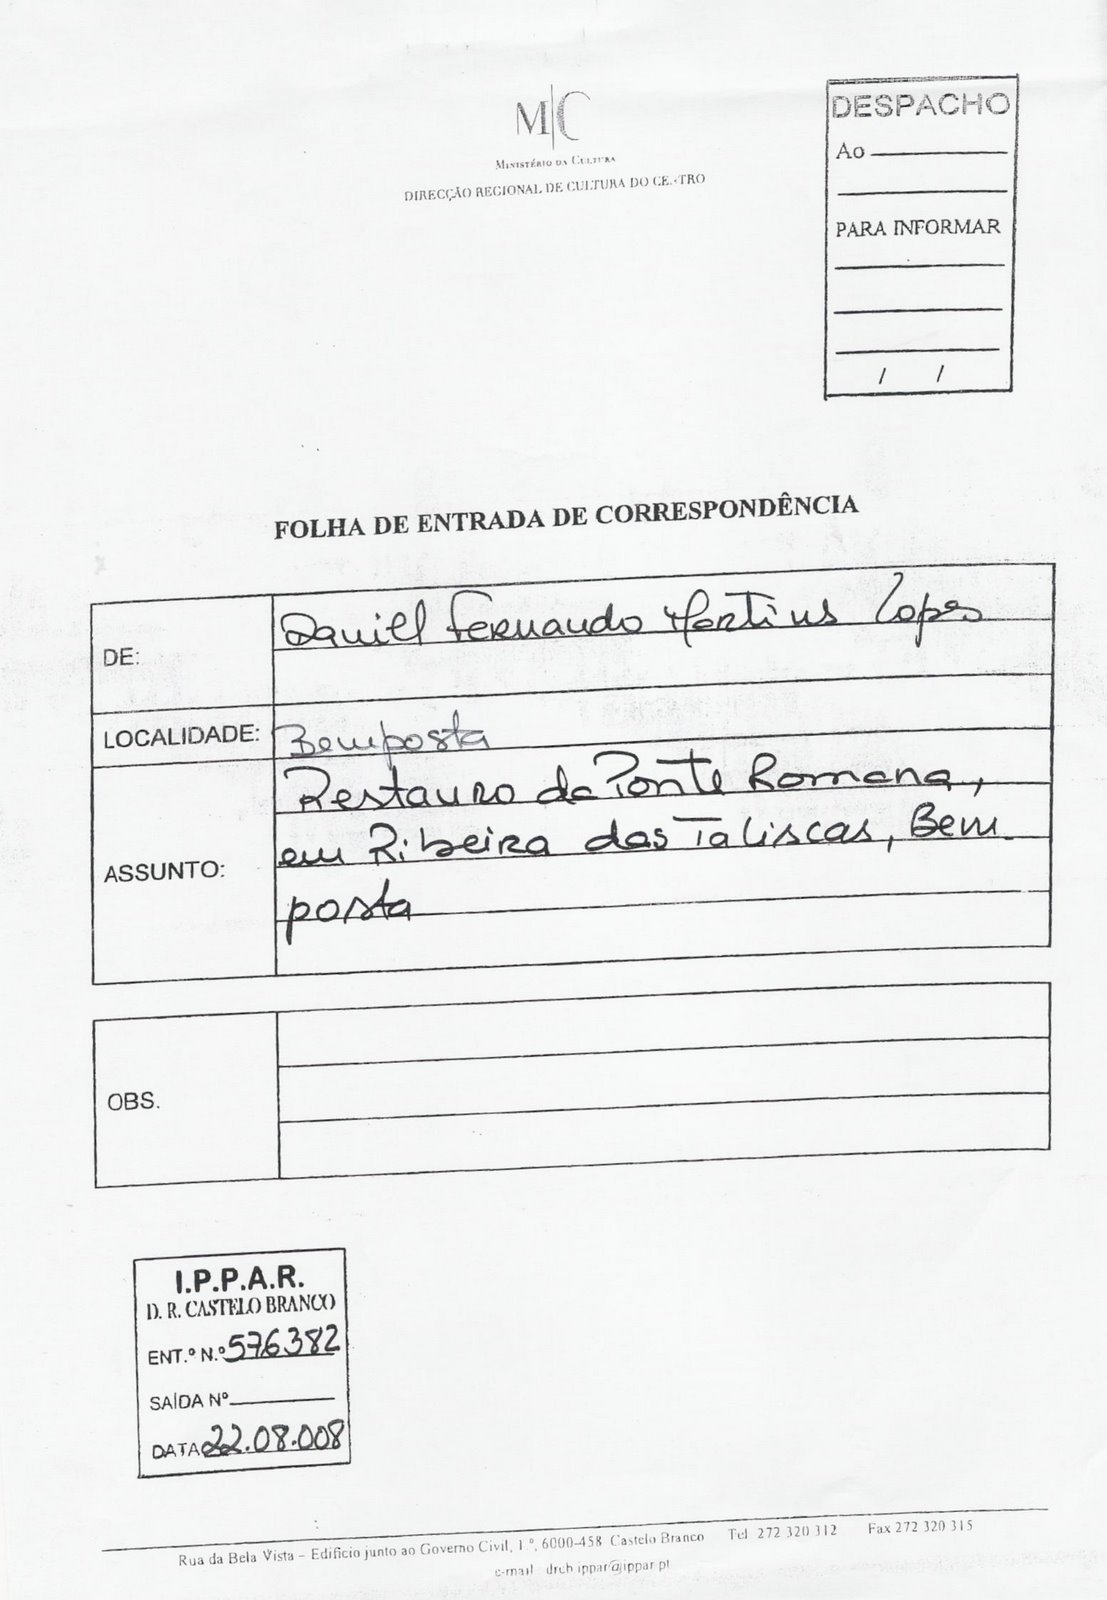 M|C
MINISTÉRIO DA CULTURA
DIRECÇÃO REGIONAL DE CULTURA DO CE.TRO
DESPACHO
Ao
PARA INFORMAR
/ /
FOLHA DE ENTRADA DE CORRESPONDÊNCIA
DE:
Daniel Fernando Martins Lopes
LOCALIDADE:
Bemposta
ASSUNTO:
Restauro da Ponte Romana,
em Ribeira das Taliscas, Bem
posta
OBS.
I.P.P.A.R.
D. R. CASTELO BRANCO
ENT.º N.º 576382
SAÍDA Nº
DATA 22.08.008
Rua da Bela Vista – Edifício junto ao Governo Civil, 1.º, 6000-458 Castelo Branco Tel 272 320 312 Fax 272 320 315
e-mail drcb.ippar@ippar.pt